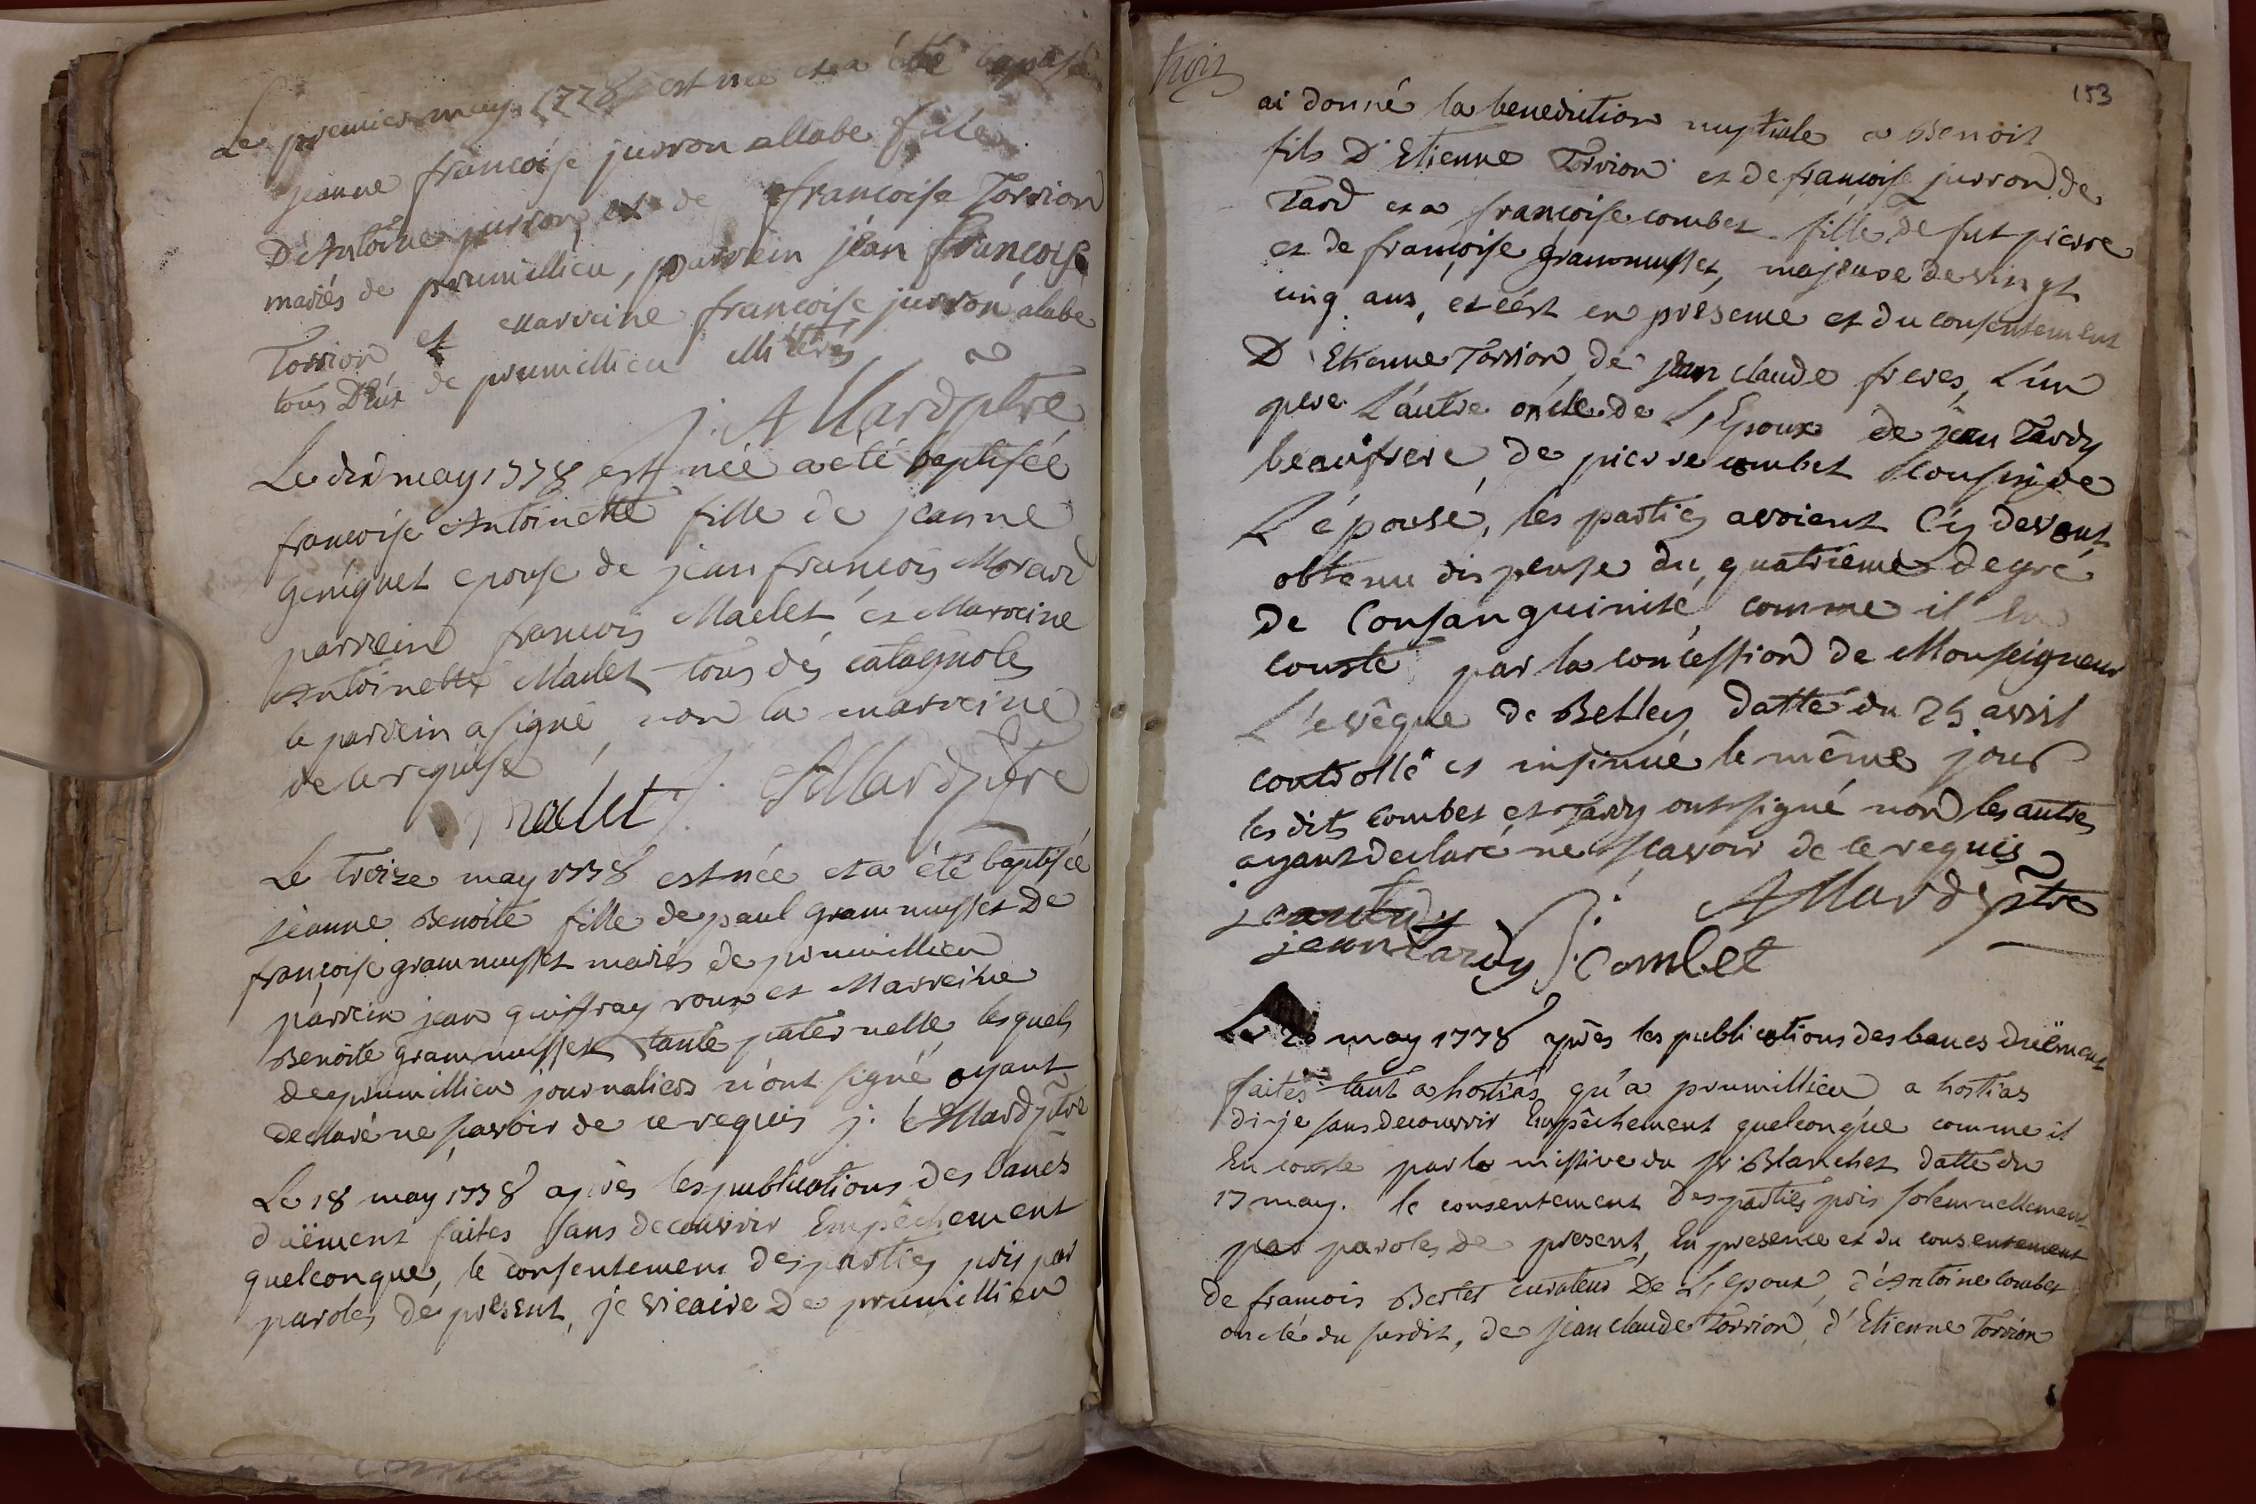 Le premier may 1778 est née et a été baptisée
jeanne françoise jurron allabe fille
D'Antoine jurron et de françoise Torrion
mariés de prumillieu, parrein jean françois
Torrion et marreine françoise jurron alabe
tous D'eux de prumillieu illiterés
j. Allard ptre
Le dix may 1778 est née a été baptisée
françoise Antoinette fille de jeanne
geniquet epouse de jean françois Morard
parrein françois Maclet et Marreine
Antoinette Maclet tous des catagnoles
le parrein a signé, non la marreine
de ce requise
maclet j. Allard ptre
Le treize may 1778 est née et a été baptisée
jeanne Benoite fille de paul grammusset De
françoise grammusset mariés de prumillieu
parrein jean guiffray roux et Marreine
Benoite grammusset tante paternelle, lesquels
de prumillieu journaliers n'ont signé ayant
declaré ne savoir de ce requis j. Allard ptre
Le 18 may 1778 après les publications des bancs
duëment faites sans decouvrir Empêchement
quelconque, le consentement des parties pris par
paroles de present, je vicaire De prumillieu
trois
153
ai donné la benediction nuptiale a Benoit
fils D'Etienne Torrion et de françoise jurron de
Tard et a françoise combet fille de fut pierre
et de françoise grammusset, majeure de vingt
cinq ans, et c'est en présence et du consentement
D'Etienne Torrion, de jean claude freres, L'un
pere L'autre oncle de L'Epoux de jean Tardy
beaufrere, de pierre combet cousin de
L'épouse, les parties avoient Cy devant
obtenu dispense du quatrieme degré
de Consanguinité, comme il en
conste par la concession de Monseigneur
L'evêque de Belley datté du 25 avril
controllé et insinué le même jour
les dits combet et Tardy ont signé non les autres
ayant declaré ne sçavoir de ce requis
j. Allard ptre
jean tardy p. Combet
Le 20 may 1778 après les publications des bancs duëment
faites tant a hostias qu'a prumillieu a hostias
di-je sans decouvrir Empêchement quelconque comme il
En conste par la missive du sr. Blanchet datté du
17 may. le consentement des parties pris solemnellement
par paroles de present, En presence et du consentement
de françois Bertet curateur De L'epoux, d'Antoine combet
oncle du susdit, de jean claude Torrion, d'Etienne Torrion